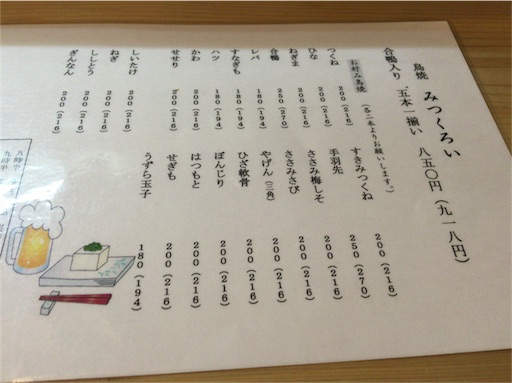 鳥焼 みつくろい
合鴨入り、五本一揃い 八五〇円(九一八円)
お好み鳥焼 (各二本よりお願いします。)
つくね 200(216)
ひな 200(216)
ねぎま 200(216)
合鴨 250(270)
レバ 180(194)
すなぎも 180(194)
ハツ 180(194)
かわ 200(216)
せせり 200(216)
しいたけ 200(216)
ねぎ 200(216)
ししとう 200(216)
ぎんなん 200(216)
すきみつくね 200(216)
手羽先 250(270)
ささみ梅しそ 200(216)
ささみさび 200(216)
やげん(三角) 200(216)
ひざ軟骨 200(216)
ぼんじり 200(216)
はつもと 200(216)
せぎも 200(216)
うずら玉子 180(194)
八時半
九時半